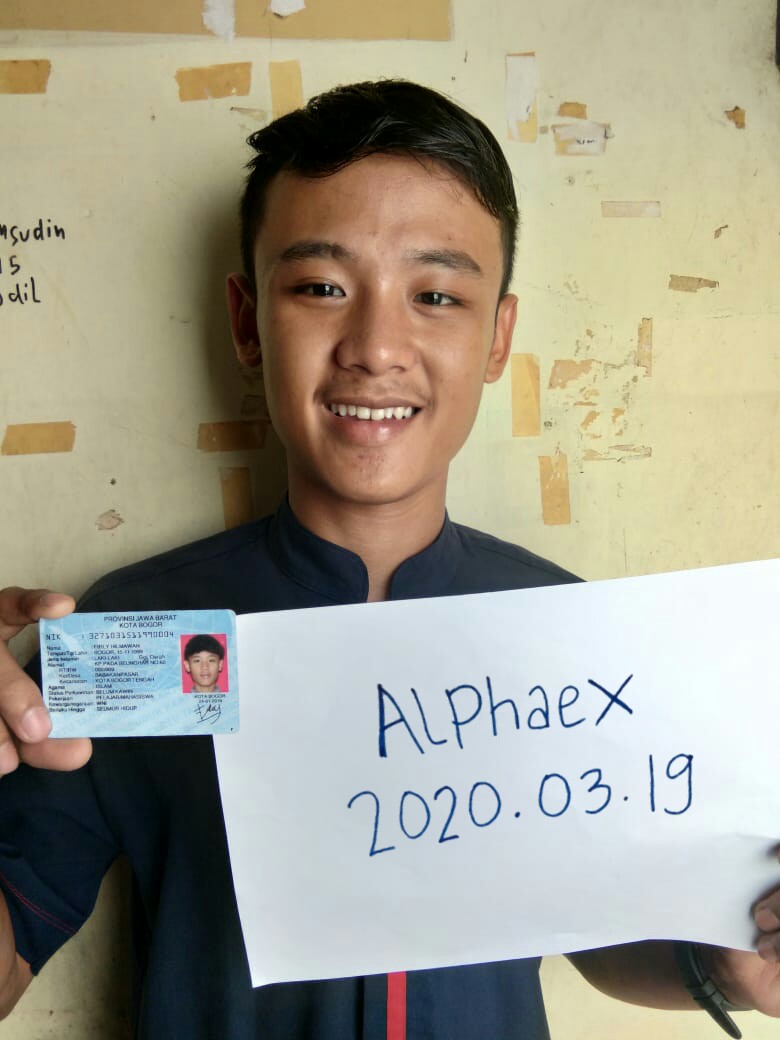 msudin
15
odil
PROVINSI JAWA BARAT
KOTA BOGOR
NIK : 3271031511990004
Nama
LAKI-LAKI Gol. Darah
Alamat
RT/RW
Kel/Desa : BABAKANPASAR
Kecamatan : KOTA BOGOR TENGAH
Agama : ISLAM
Status Perkawinan : BELUM KAWIN
Pekerjaan : PELAJAR/MAHASISWA
Kewarganegaraan : WNI
Berlaku Hingga : SEUMUR HIDUP
KOTA BOGOR
ALPhaex
2020.03.19